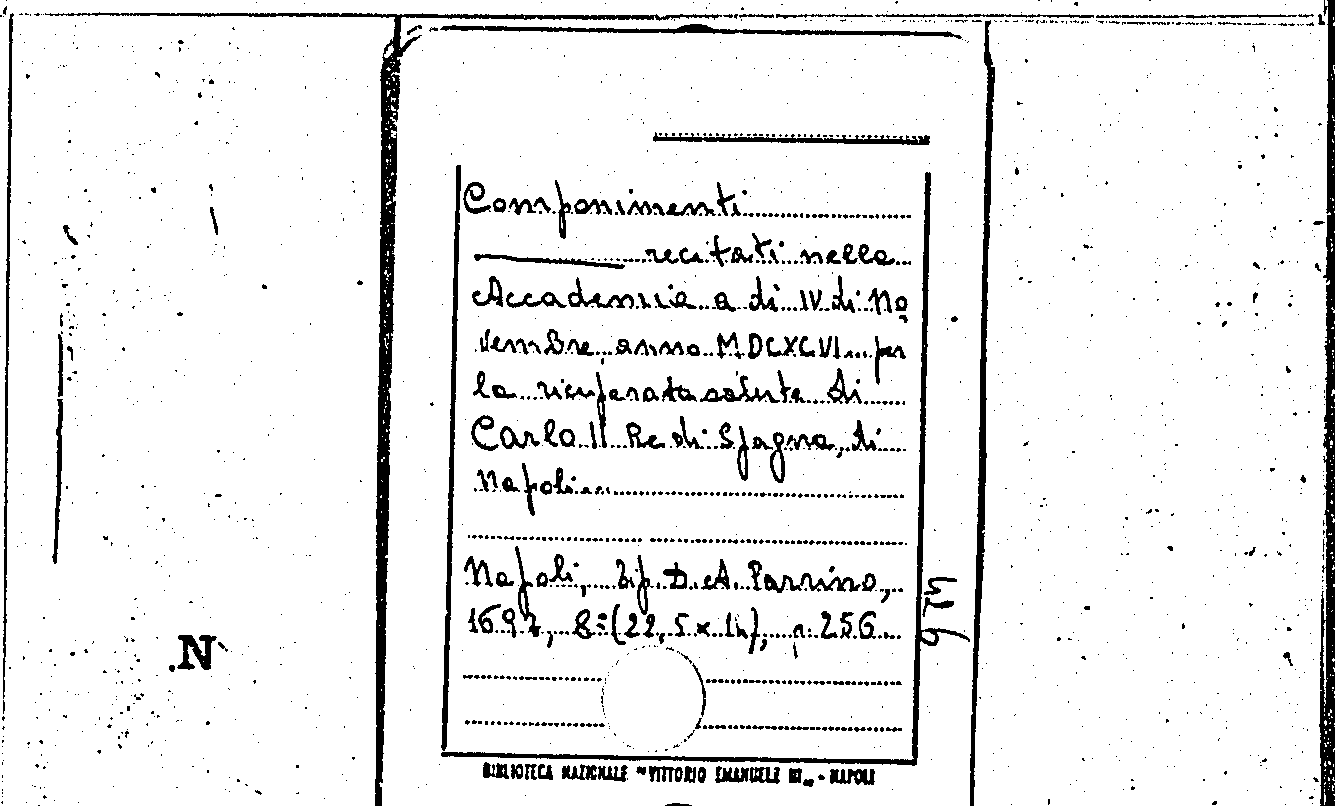 Componimenti
recitati nella
Accademia a di IV di No
vembre, anno MDCXCVI... per
la ricuperata salute di
Carlo II Re di Spagna, di
Napoli...
Napoli, Tip. D. A. Parrino,
1697, 8° (22,5 x 14), p. 256
.N
BIBLIOTECA NAZIONALE "VITTORIO EMANUELE III" - NAPOLI